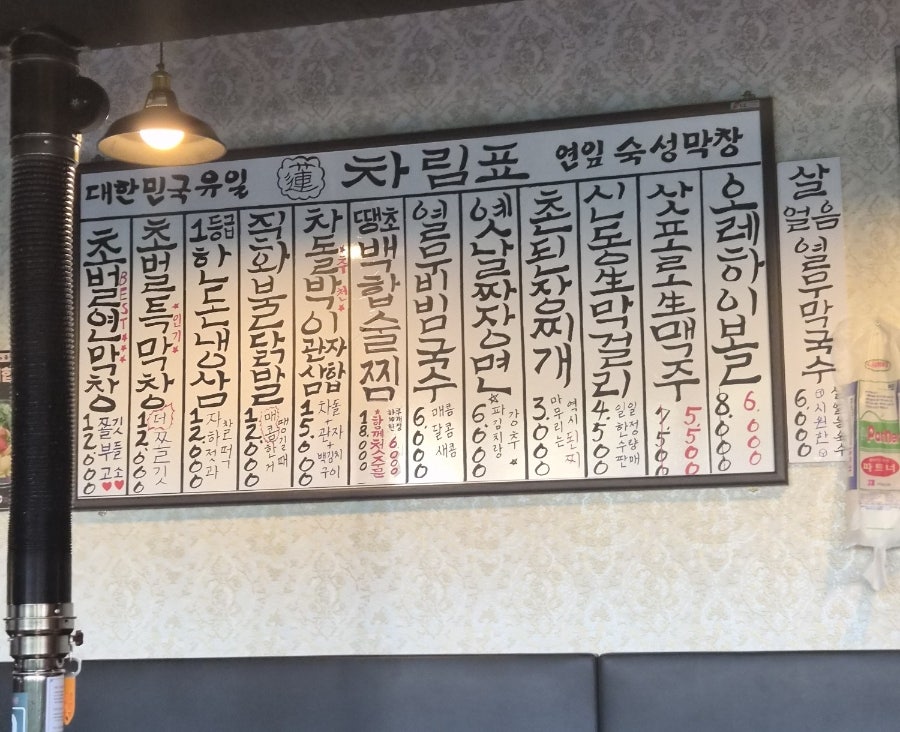 대한민국 유일
蓮
차림표
연잎 숙성막창
초벌연막창
BEST
쫄깃
부들
고소
12000
초벌특막창
인기
더
쫄깃
12000
1등급
한돈냉삼
12000
직화불닭발
매콤한거
땡길때
12000
차돌박이관자삼합
추천
차돌
+
관자
+
백김치
구이
15000
땡초
백합술찜
함께
18000
6000
열무비빔국수
매콤
달콤
새콤
6.000
옛날짜장면
파김치랑
강추
6.000
촌된장찌개
마무리는
역시 된찌
3.000
신동生막걸리
일일한정
수량판매
4.500
삿포로生맥주
7.500
5.500
오레하이볼
8.000
6.000
살얼음
열무막국수
시원한
6.000
파트너